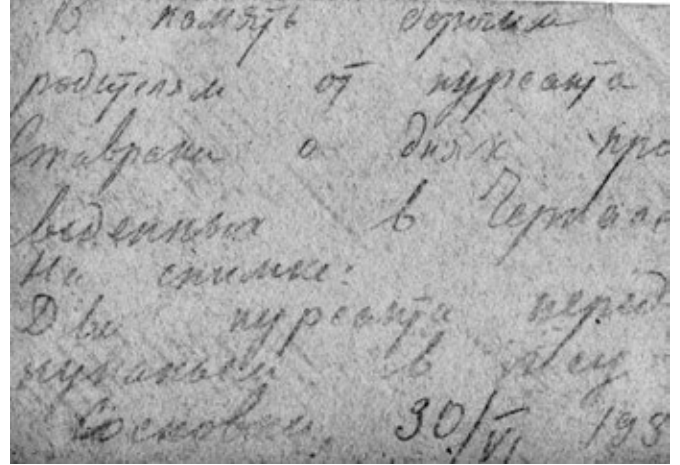 В память дорогим
родителям от курсанта
Ставраки о днях про
веденных в
На снимке:
Два курсанта перед
купаньем в
Сосновки 30/VI 193